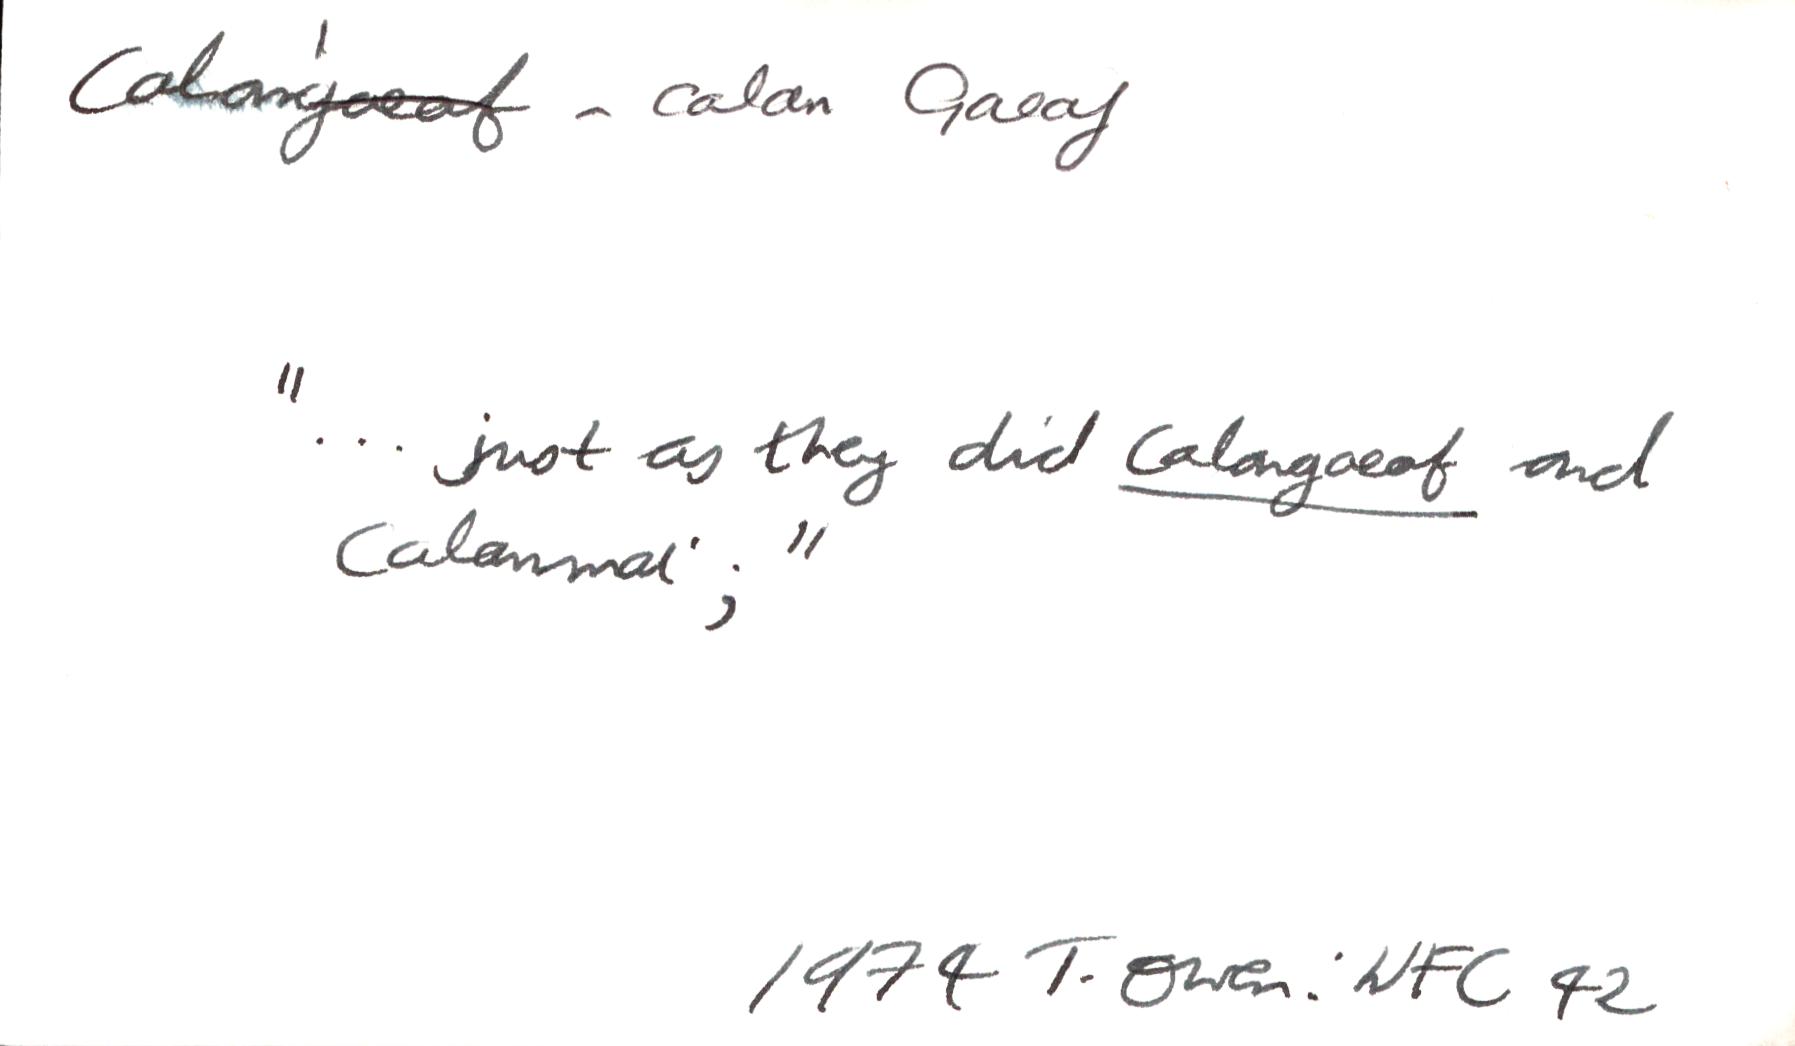 Calangaeaf - calan Gaeaf
"... just as they did Calangaeaf and
Calanmai ; "
1974 T. Owen: WFC 42